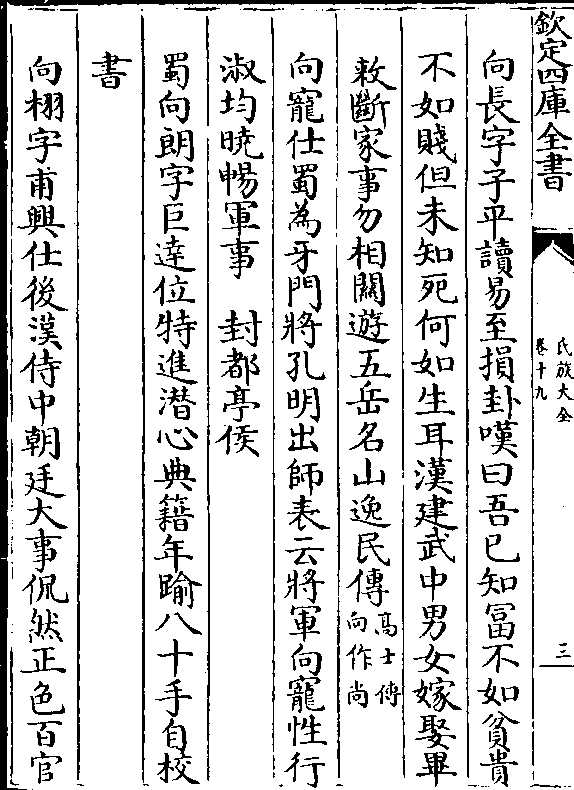 欽定四庫全書
氏族大全
卷十九
三
向長字子平讀易至損卦嘆曰吾已知冨不如貧貴
不如賤但未知死何如生耳漢建武中男女嫁娶畢
敕斷家事勿相關遊五岳名山逸民傳高士傳
向作尚
向寵仕蜀為牙門將孔明出師表云將軍向寵性行
淑均曉暢軍事　封都亭侯
蜀向朗字巨達位特進潜心典籍年踰八十手自校
書
向栩字甫興仕後漢侍中朝廷大事侃然正色百官